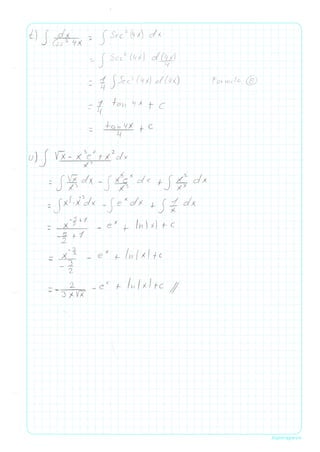 t) ∫ dx / cos² 4x = ∫ Sec² (4x) dx
= ∫ Sec² (4x) d(4x) / 4
= 1/4 ∫ Sec² (4x) d(4x) Formula
= 1/4 tan 4x + c
= tan 4x / 4 + c
u) ∫ (√x - x³eˣ + x²) / x³ dx
= ∫ √x / x³ dx - ∫ x³eˣ / x³ dx + ∫ x² / x³ dx
= ∫ x^½ · x⁻³ dx - ∫ eˣ dx + ∫ 1/x dx
= x^(-5/2 + 1) / (-5/2 + 1) - eˣ + ln|x| + c
= x^(-3/2) / (-3/2) - eˣ + ln|x| + c
= - 2 / (3 x√x) - eˣ + ln|x| + c //